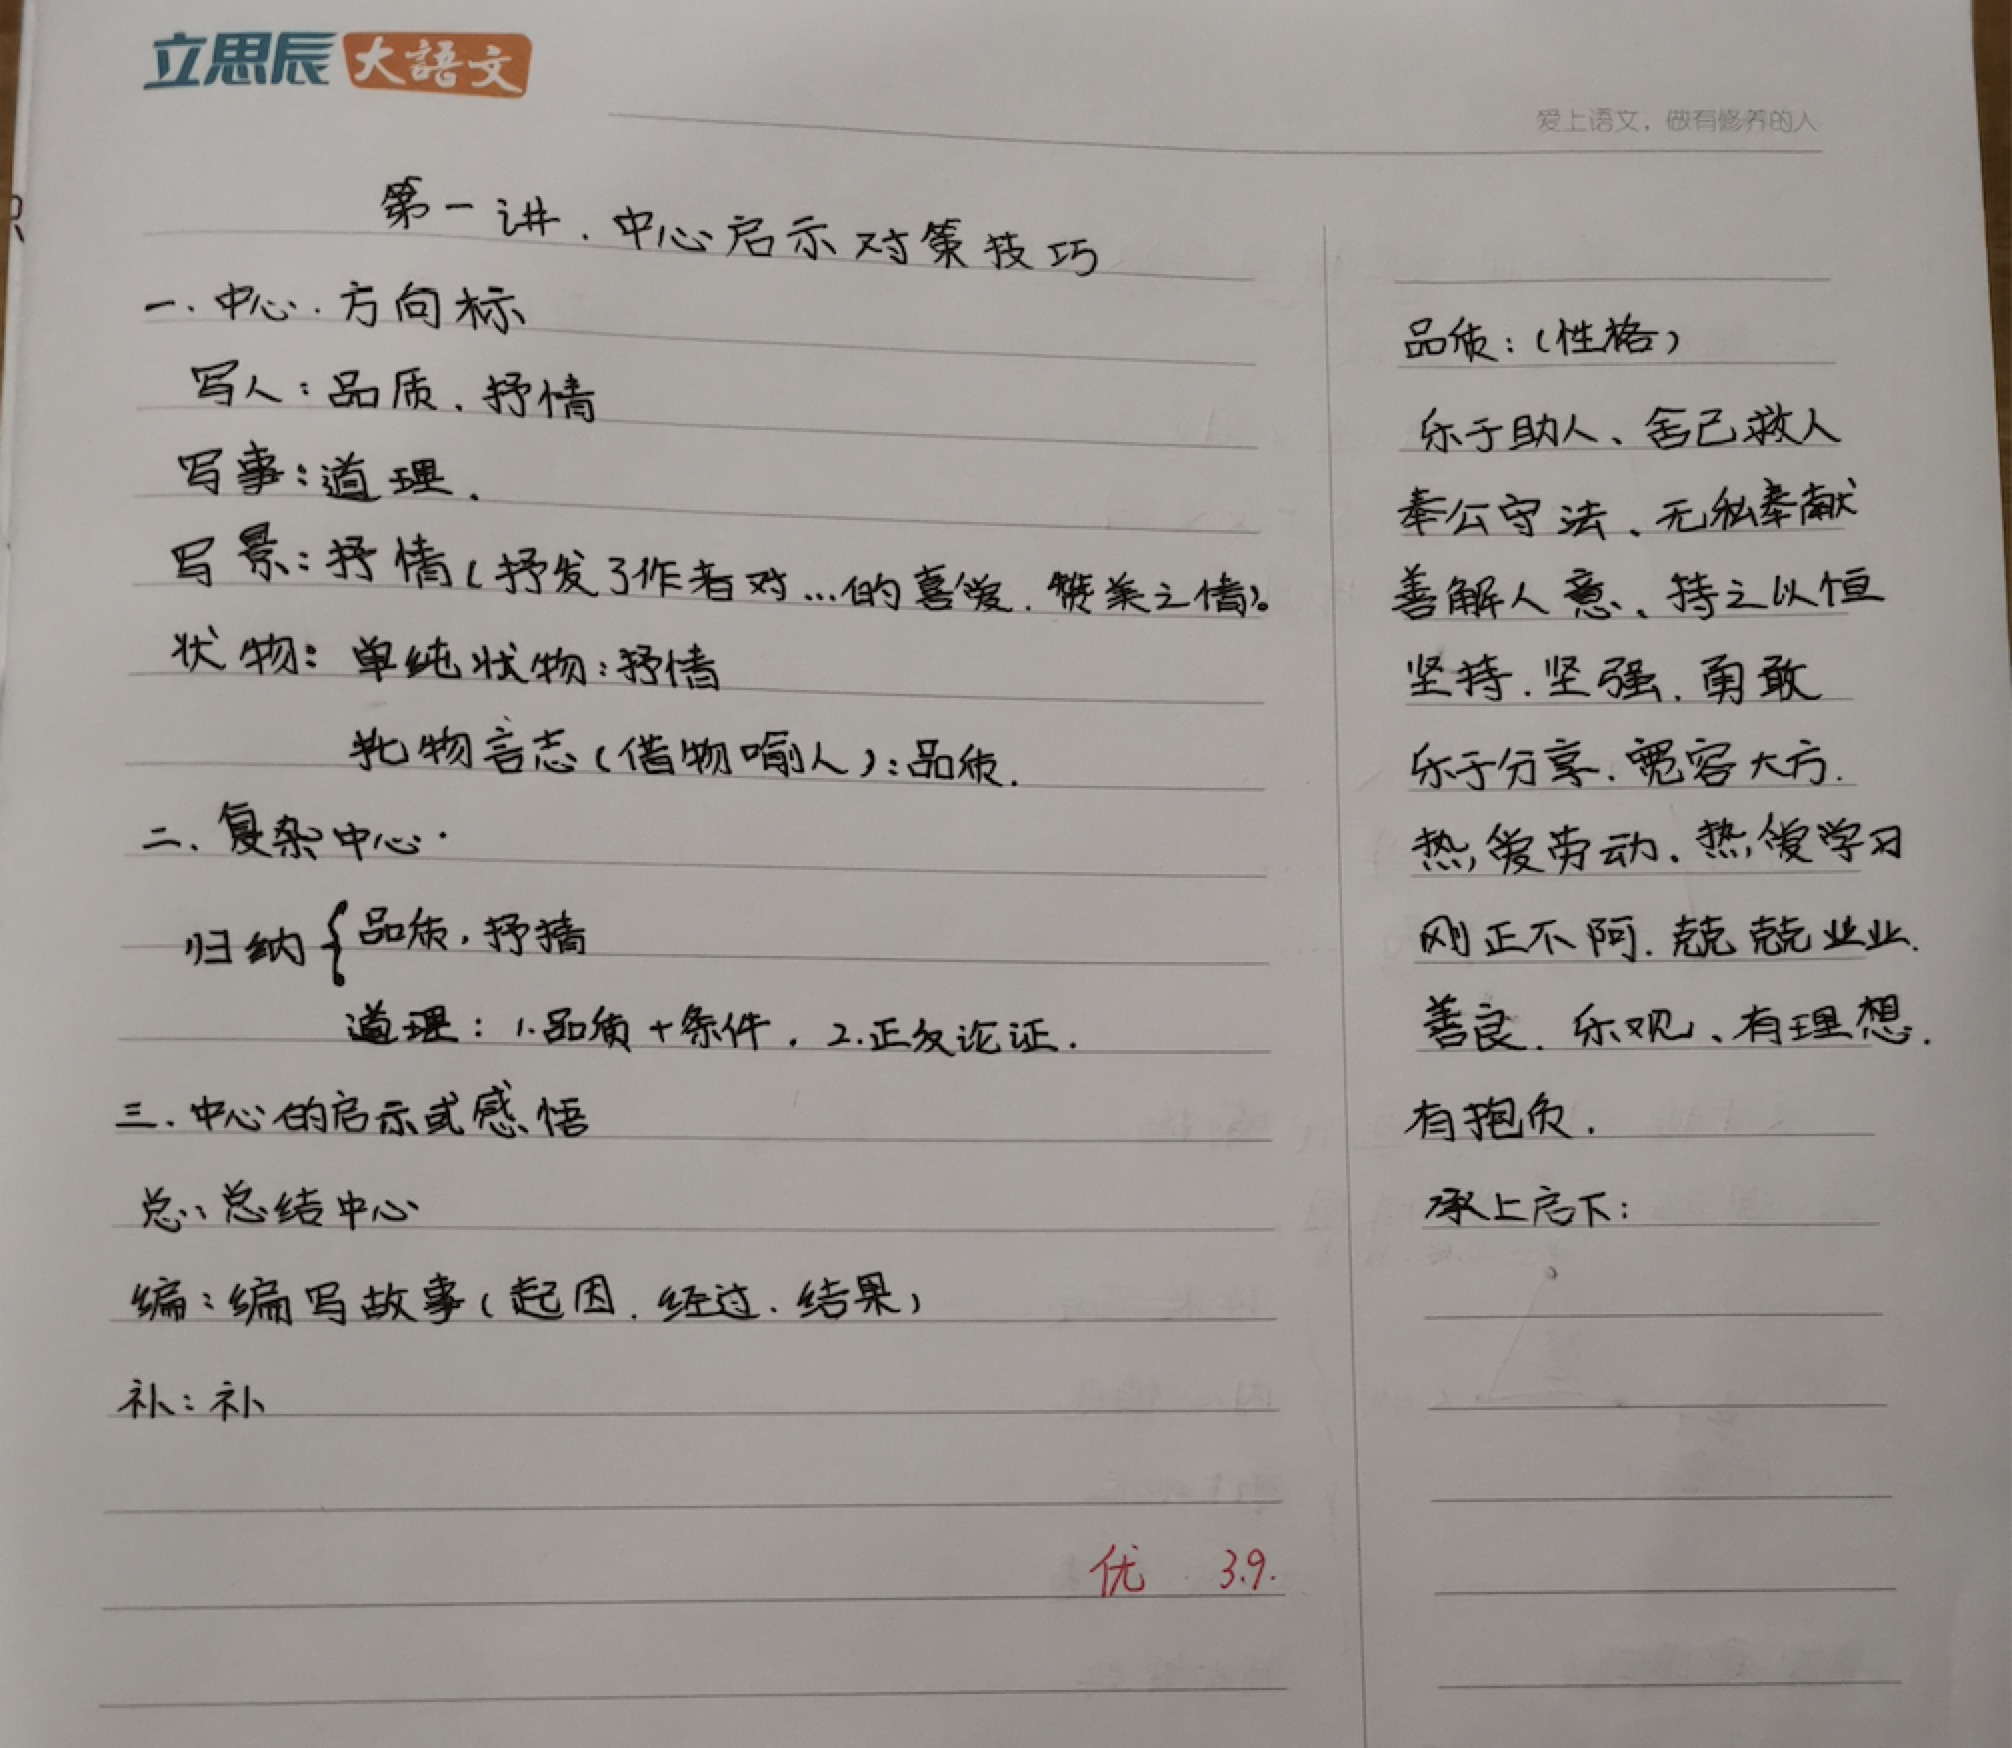 立思辰大語文
爱上语文，做有修养的人
第一讲.中心启示对策技巧
一.中心.方向标
写人：品质.抒情
写事：道理.
写景：抒情(抒发了作者对...的喜爱.赞美之情)。
状物：单纯状物：抒情
托物言志(借物喻人)：品质.
二.复杂中心.
归纳{品质，抒情
道理：1.品质+条件.2.正反论证.
三.中心的启示或感悟
总：总结中心
编：编写故事(起因.经过.结果)
补：补
优 3.9.
品质：(性格)
乐于助人、舍己救人
奉公守法、无私奉献
善解人意、持之以恒
坚持.坚强.勇敢
乐于分享.宽容大方.
热爱劳动.热爱学习
刚正不阿.兢兢业业.
善良.乐观、有理想.
有抱负.
承上启下：